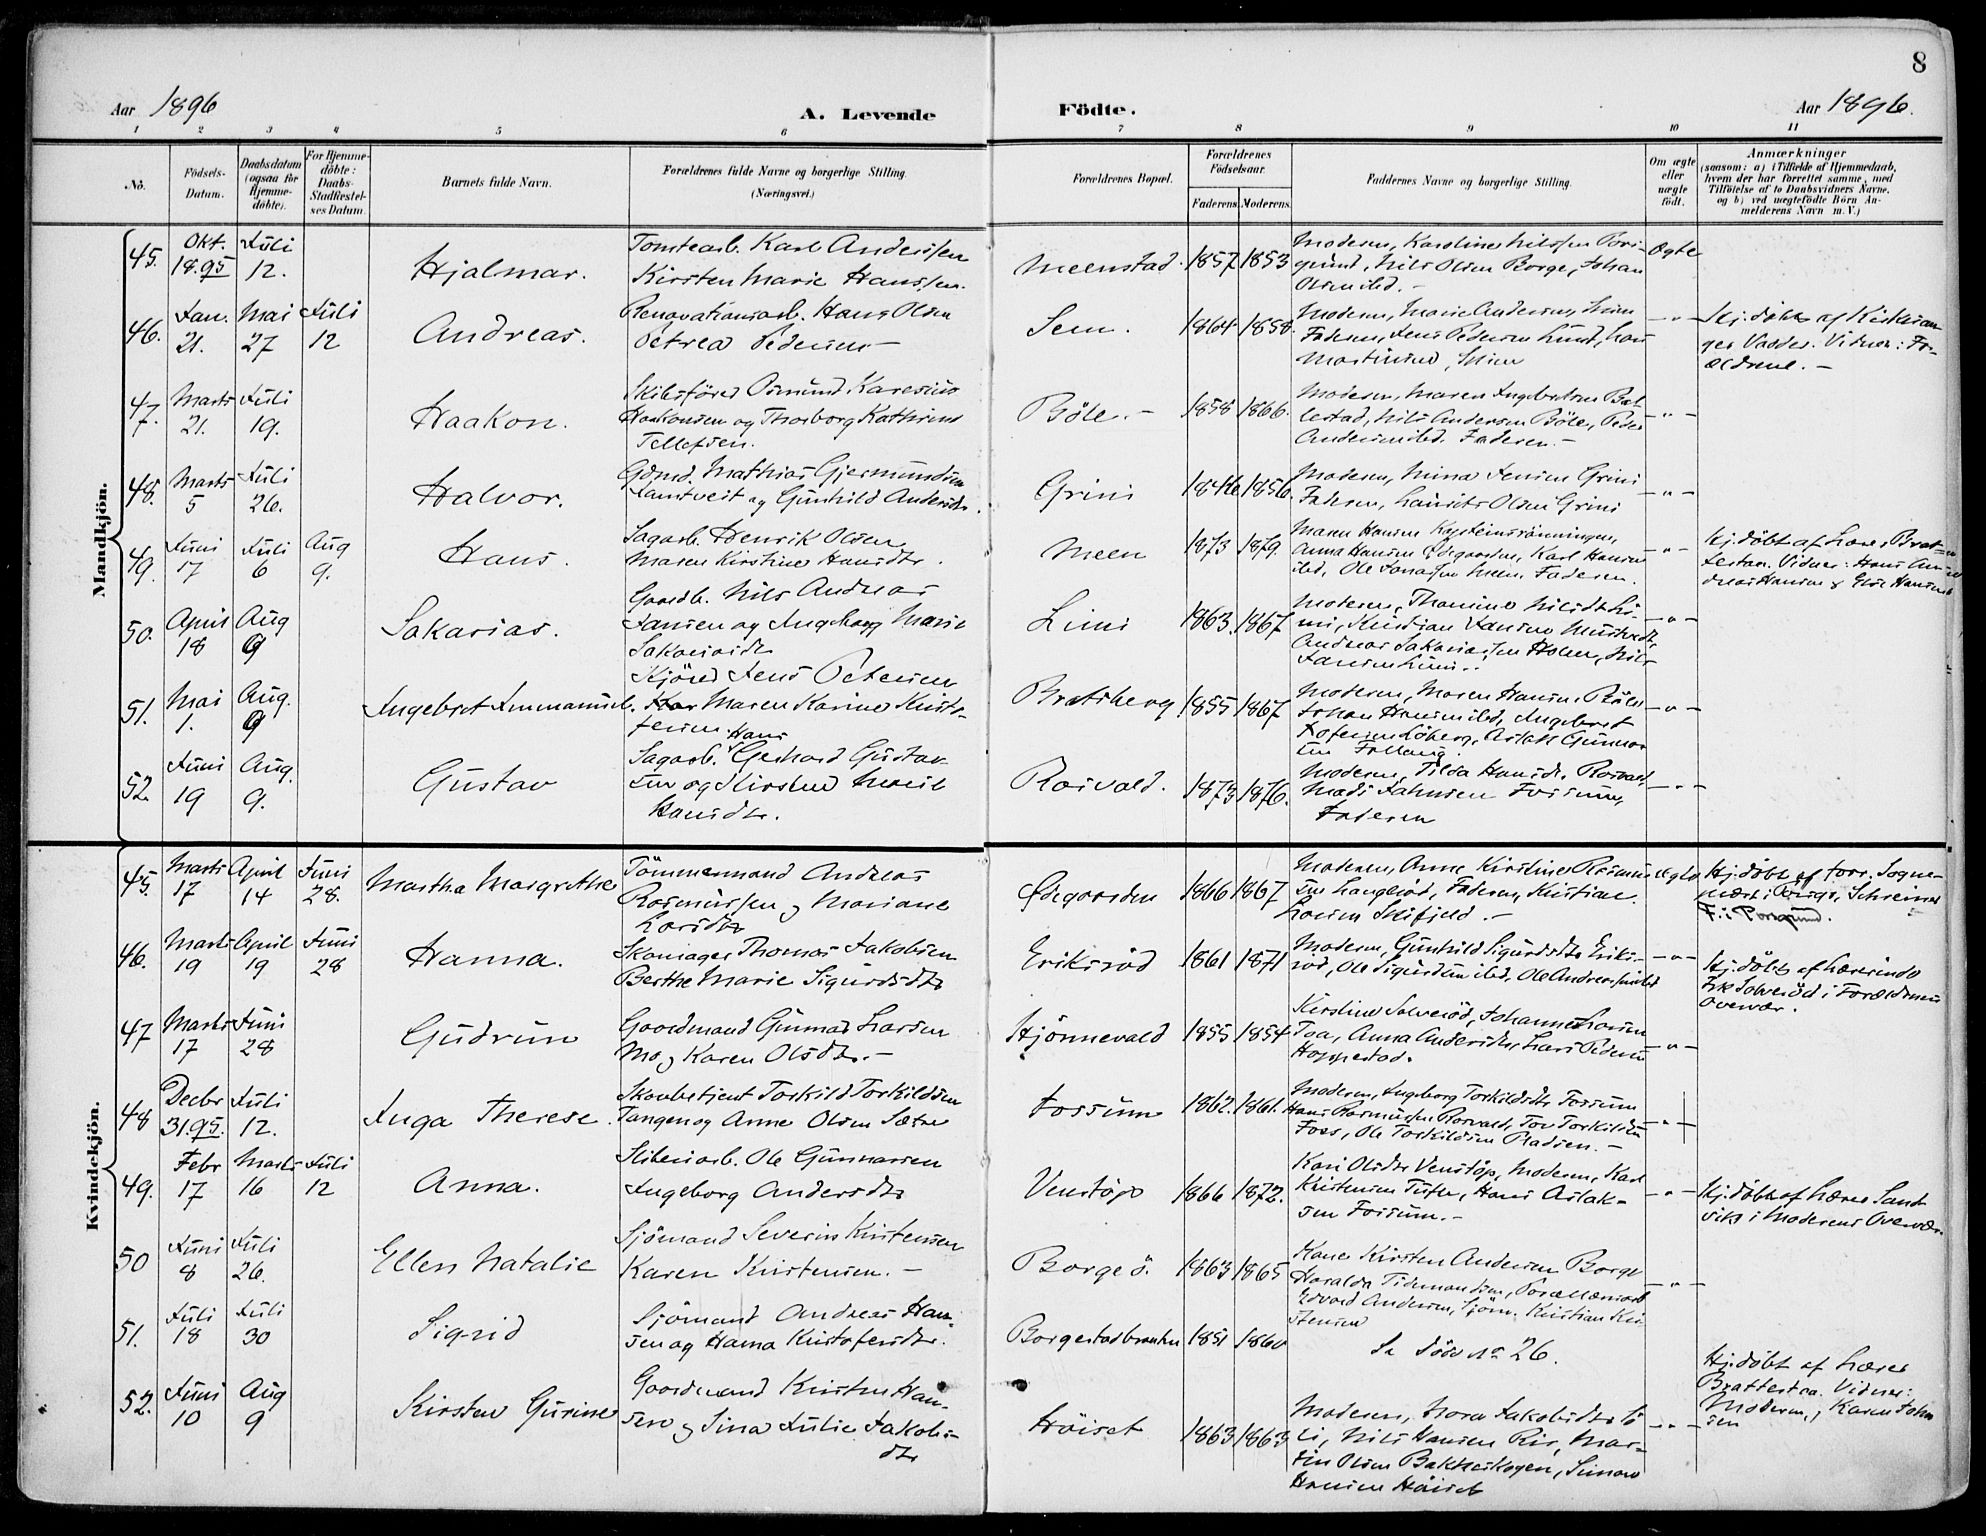 8
Aar 1896
A. Levende
Födte.
Aar 1896.
1 2 3 4 5 6 7 8 9 10 11
No.
Födsels-
Datum.
Daabsdatum
(ogsaa for
Hjemme-
döbte).
For Hjemme-
döbte:
Daabs-
Stadfæstel-
ses Datum.
Barnets fulde Navn.
Forældrenes fulde Navne og borgerlige Stilling.
(Næringsvei.)
Forældrenes Bopæl.
Forældrenes
Födselsaar.
Faderens. Moderens.
Faddernes Navne og borgerlige Stilling.
Om ægte
eller
uægte
födt.
Anmærkninger
(saasom: a) i Tilfælde af Hjemmedaab,
hvem der har forrettet samme, med
Tilföielse af to Daabsvidners Navne,
og b) ved uægtefödte Börn An-
melderens Navn m. V.)
Mandkjön.
45. Okt. 18.95 Juli 12. Hjalmar.
Tomtearb. Karl Anderssen
Kirsten Marie Hanssen.
Meenstad. 1857 1853
Moderen, Karoline Nilssen Pors-
grund, Nils Olsen Borge, Johan
Olsen ibd. -
Ægte
46. Jan. 21. Mai 27 Juli 12 Andreas.
Renovationsarb. Hans Olsen
Petrea Pedersen -
Sem. 1864 1858.
Moderen, Marie Andersen,
Faderen, Jens Pedersen Lund,
- " -
Hj. döbt af Kristian
Vidner: For-
ældrene. -
47. Marts 21. Juli 19. Haakon.
Skibsförer Osmund
Haakonsen og Thorborg Kathrine
Tellefsen.
Böle. - 1858 1866.
Moderen, Maren Ingebretsen
Nils Andersen Böle, Peder
Andersen ibd. Faderen. -
- " -
48. Marts 5 Juli 26. Halvor.
Gdmd. Mathias Gjermundsen
og Gunhild Andersdtr.
Grini 1846 1856.
Moderen, Mina Jensen Grini
Faderen, Laurits Olsen Grini
- " -
49. Juni 17 Juli 6 Aug 9. Hans.
Sagarb. Henrik Olsen
Maren Kirstine Hansdtr.
Meen 1873 1879.
Maren Hansen
Anna Hansen Ödegaarden, Karl Hansen
ibd, Ole Meen. Faderen.
- " -
Hj. döbt af Lærer Brat-
testaa. Vidner: Hans An-
dreas Hansen & Hansen
50. April 18 Aug 9 Sakarias.
Gaardb. Nils Andreas
Jansen og Ingeborg Marie
Sakariasdtr
Limi 1863. 1867
Moderen, Nilsdtr Li-
mi, Kristian Jansen
Andreas Sakariassen Holm, Nils
Jansen Limi.
- " -
51. Mai 1. Aug. 9 Ingebret Immanuel.
Kjörer Jens Petersen
Maren Karine Kristo-
fersen.
Bratsberg 1855 1867
Moderen, Maren Hansen Böle,
Johan Hansen ibd, Ingebret
Aslak Gunnar
sen
- " -
52. Juni 19 Aug. 9. Gustav
Sagarb. Hans Gerhard Gustav
sen og Kirsten Marie
Hansdtr.
Raisvald. 1873 1876.
Moderen, Tilda Hansdtr. Raisvald
Mads Jahnsen Fossum,
Faderen
- " -
Kvindekjön.
45. Marts 17 April 14 Juni 28. Martha Margrethe
Tömmermand Andreas
Rasmussen og Mariane
Larsdtr
Ödegaarden 1866 1867
Moderen, Anne Kirstine Rasmus
sen Langerød, Faderen, Kristian
Larsen Skifjeld. -
ægte
Hj. döbt af forr. Sogne-
præst i Schreiner
F. i Porsgrund.
46. Marts 19 April 19 Juni 28 Hanna.
Skomager Thomas Jakobsen
Berthe Marie Sigurdsdtr
Eriksröd 1861 1871
Moderen, Gunhild Sigurdsdtr Eriks-
röd, Ole Sigurdsen ibd, Ole Andreassen ibd
- " -
Hj. döbt af Lærerinde
Solveröd i Forældrenes
Overvær.
47 Marts 17 Juni 28 Gudrun
Gaardmand Gunnar Larsen
Mo, Karen Olsdtr. -
Hjönnevald 1855 1854
Kirstine Solveröd, Johannes Larsen
Anna Andersdtr, Lars Pedersen
Hoppestad.
- " -
48 Decbr 31.95. Juli 12. Inga Therese.
Skovbetjent Torkild Torkildsen
Tangen og Anne Olsen Sætre
Fossum 1862. 1861.
Moderen, Ingeborg Torkildsdtr Fossum
Hans Rasmussen Raisvald, Tov Torkildsen
Foss, Ole Torkildsen Pladsen. -
- " -
49. Febr 17 Marts 16 Juli 12 Anna.
Sliberiarb. Ole Gunnarsen
Ingeborg Andersdtr
Venstöp 1866 1872.
Kari Olsdtr Venstöp, Moderen, Karl
Kristensen Tufte, Hans Aslak-
sen Fossum. -
- " -
Hj. döbt af Lærer Sand
vik i Moderens Overvær.
50 Juni 8 Juli 26. Ellen Natalie
Sjömand Severin Kristensen
Karen Kristensen. -
Borgeö. 1863 1865
Kone Kirsten Andersen Borge
Haralda Tidemandsen, Porcellænsarb
Edvard Andersen, Sjöm. Kristian Kri
stensen
- " -
51. Juli 18 Juli 30 Sigrid
Sjömand Andreas Han-
sen og Hanna Kristofersdtr.
Borgestadbranten 1851 1860
Se Döde No 26.
52. Juni 10 Aug 9 Kirsten Gurine
Gaardmand Kristen Han-
sen og Sina Julie Jakobs-
dtr
Höiset 1863 1863
Moderen, Nora Jakobsdtr
li, Nils Hansen Ris, Mar-
tin Olsen Bakkeskogen, Simon
Hansen Höiset
- " -
Hj. döbt af Lærer
Brattestaa. Vidner:
Moderen, Karen John
sen